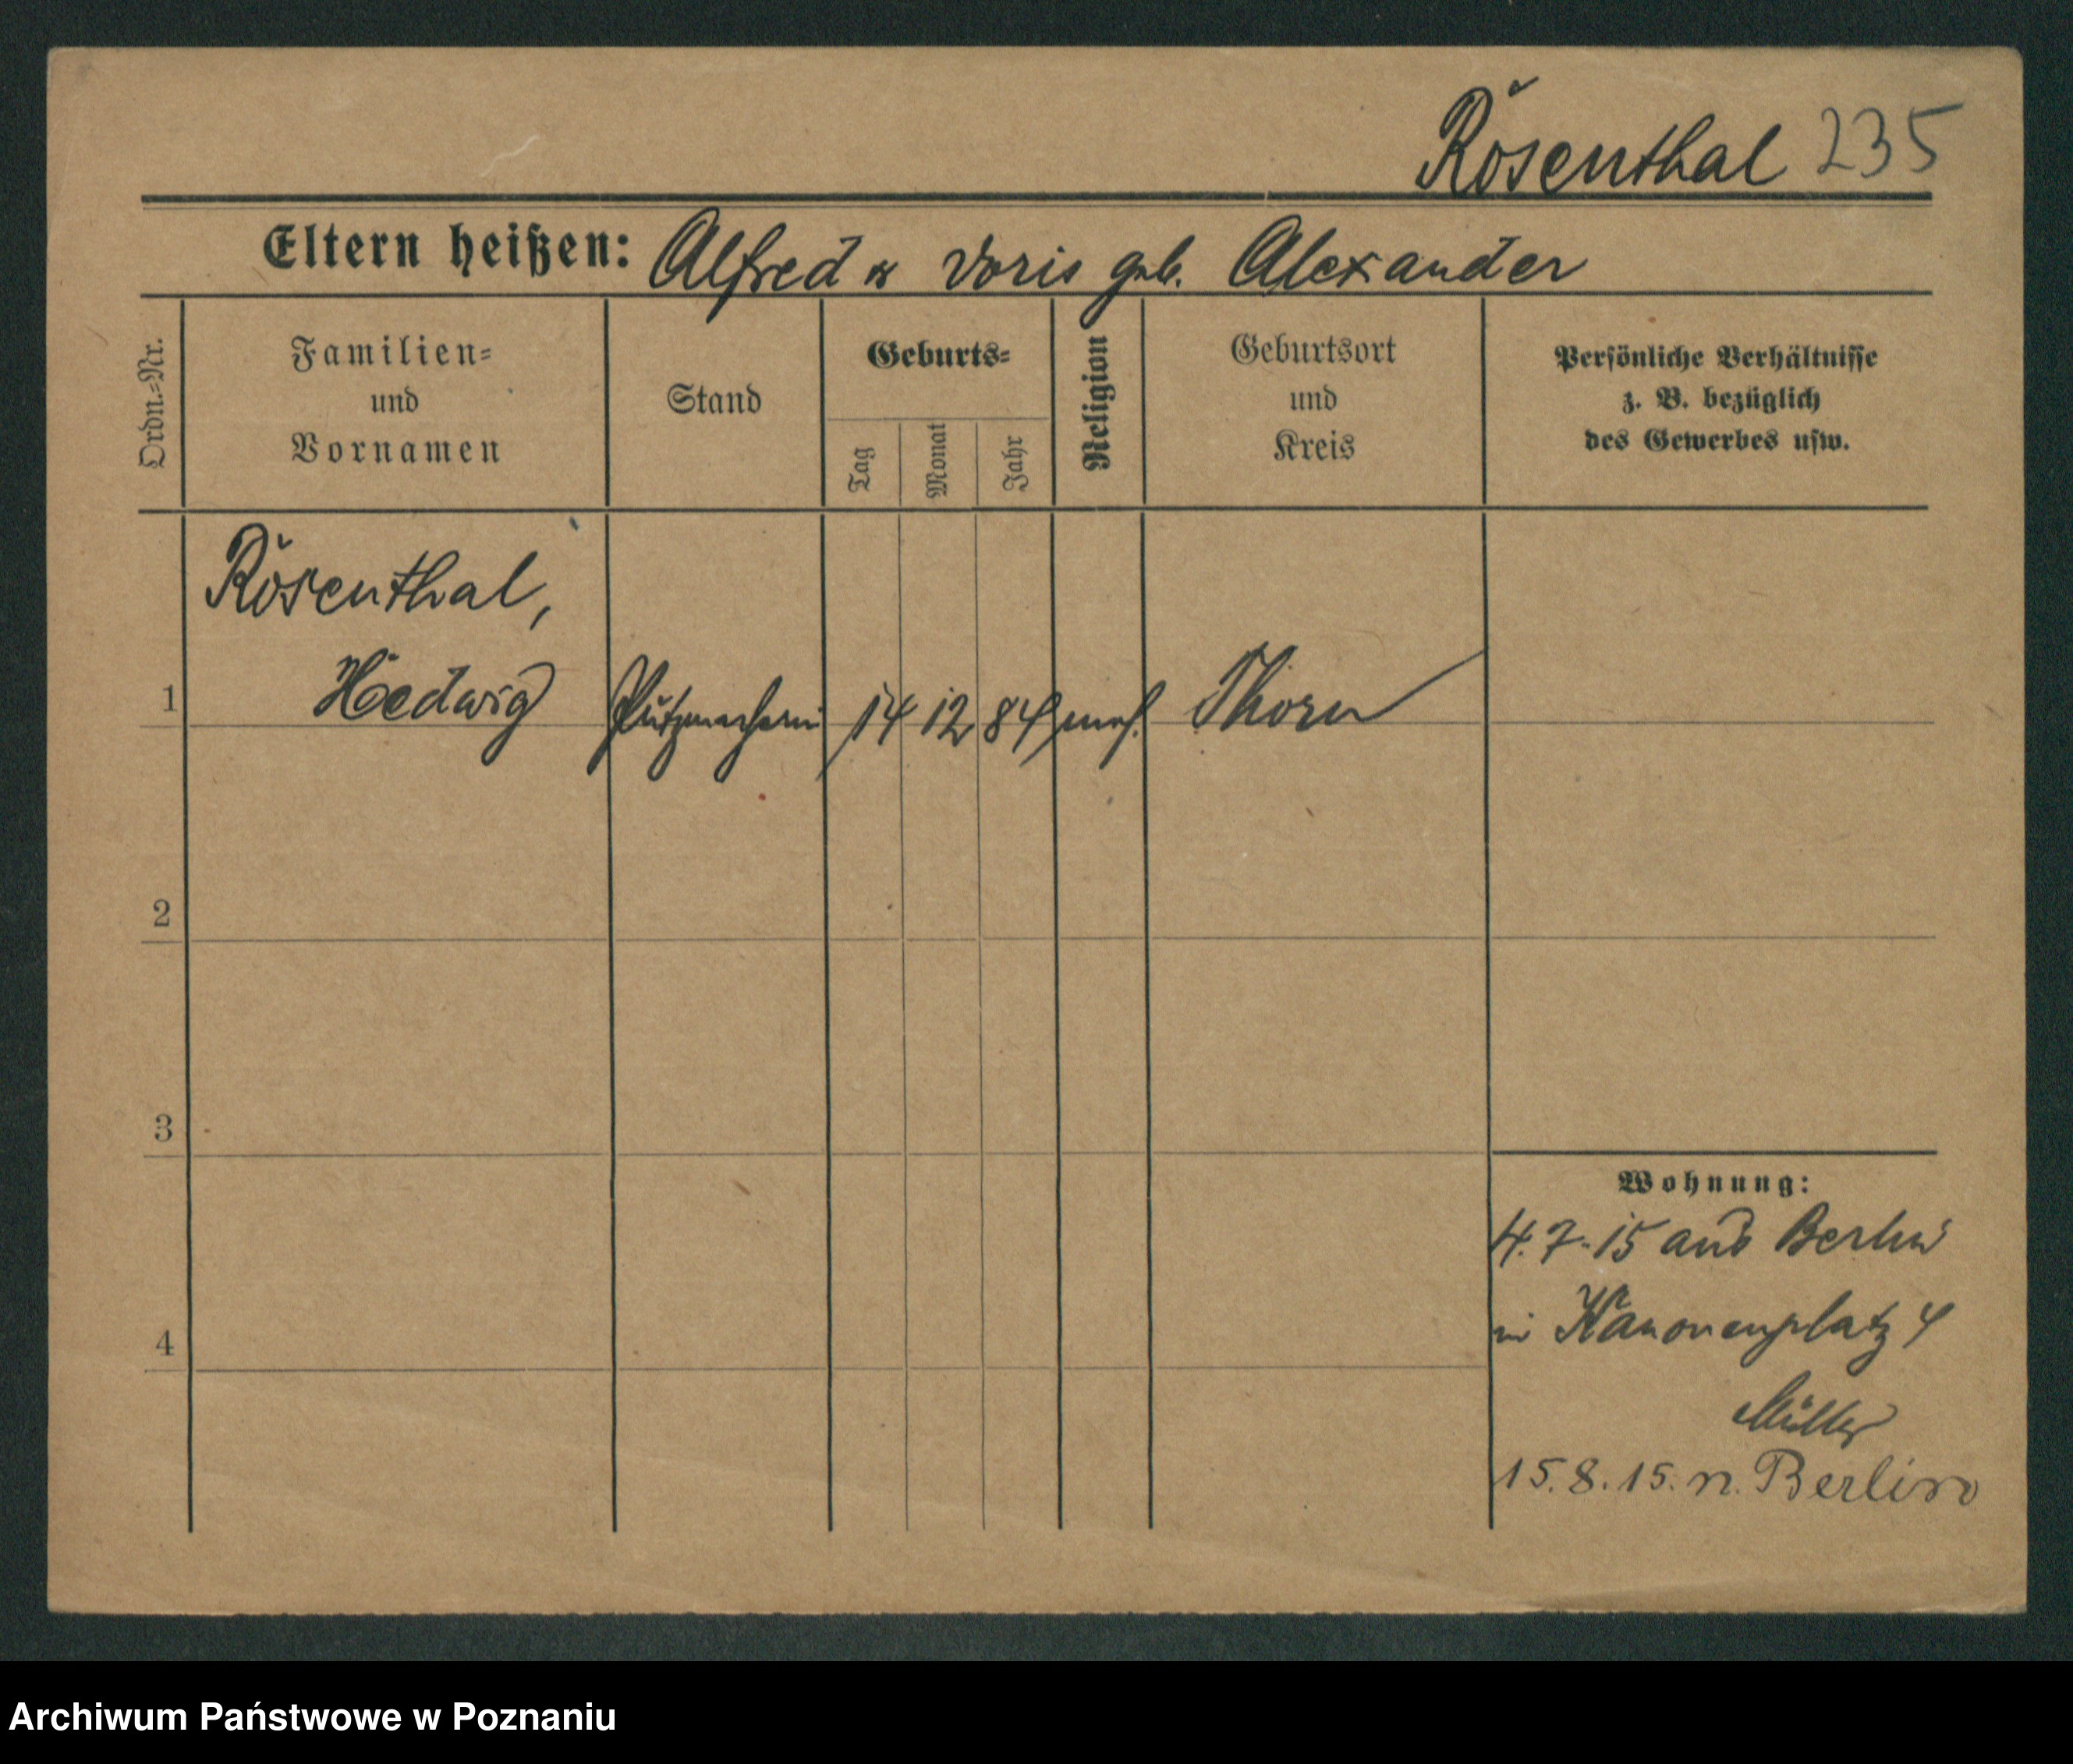 Rosenthal 235
Eltern heißen: Alfred u Doris geb. Alexander
Ordn.=Nr.
Familien=
und
Vornamen
Stand
Geburts=
Tag
Monat
Jahr
Religion
Geburtsort
und
Kreis
Persönliche Verhältnisse
z. B. bezüglich
des Gewerbes usw.
Rosenthal,
1 Hedwig Putzmacherin 14 12 84 mos. Thorn
2
3
Wohnung:
4.7.15 aus Berlin
in Kanonenplatz 4
4
Müller
15.8.15. n. Berlin
Archiwum Państwowe w Poznaniu